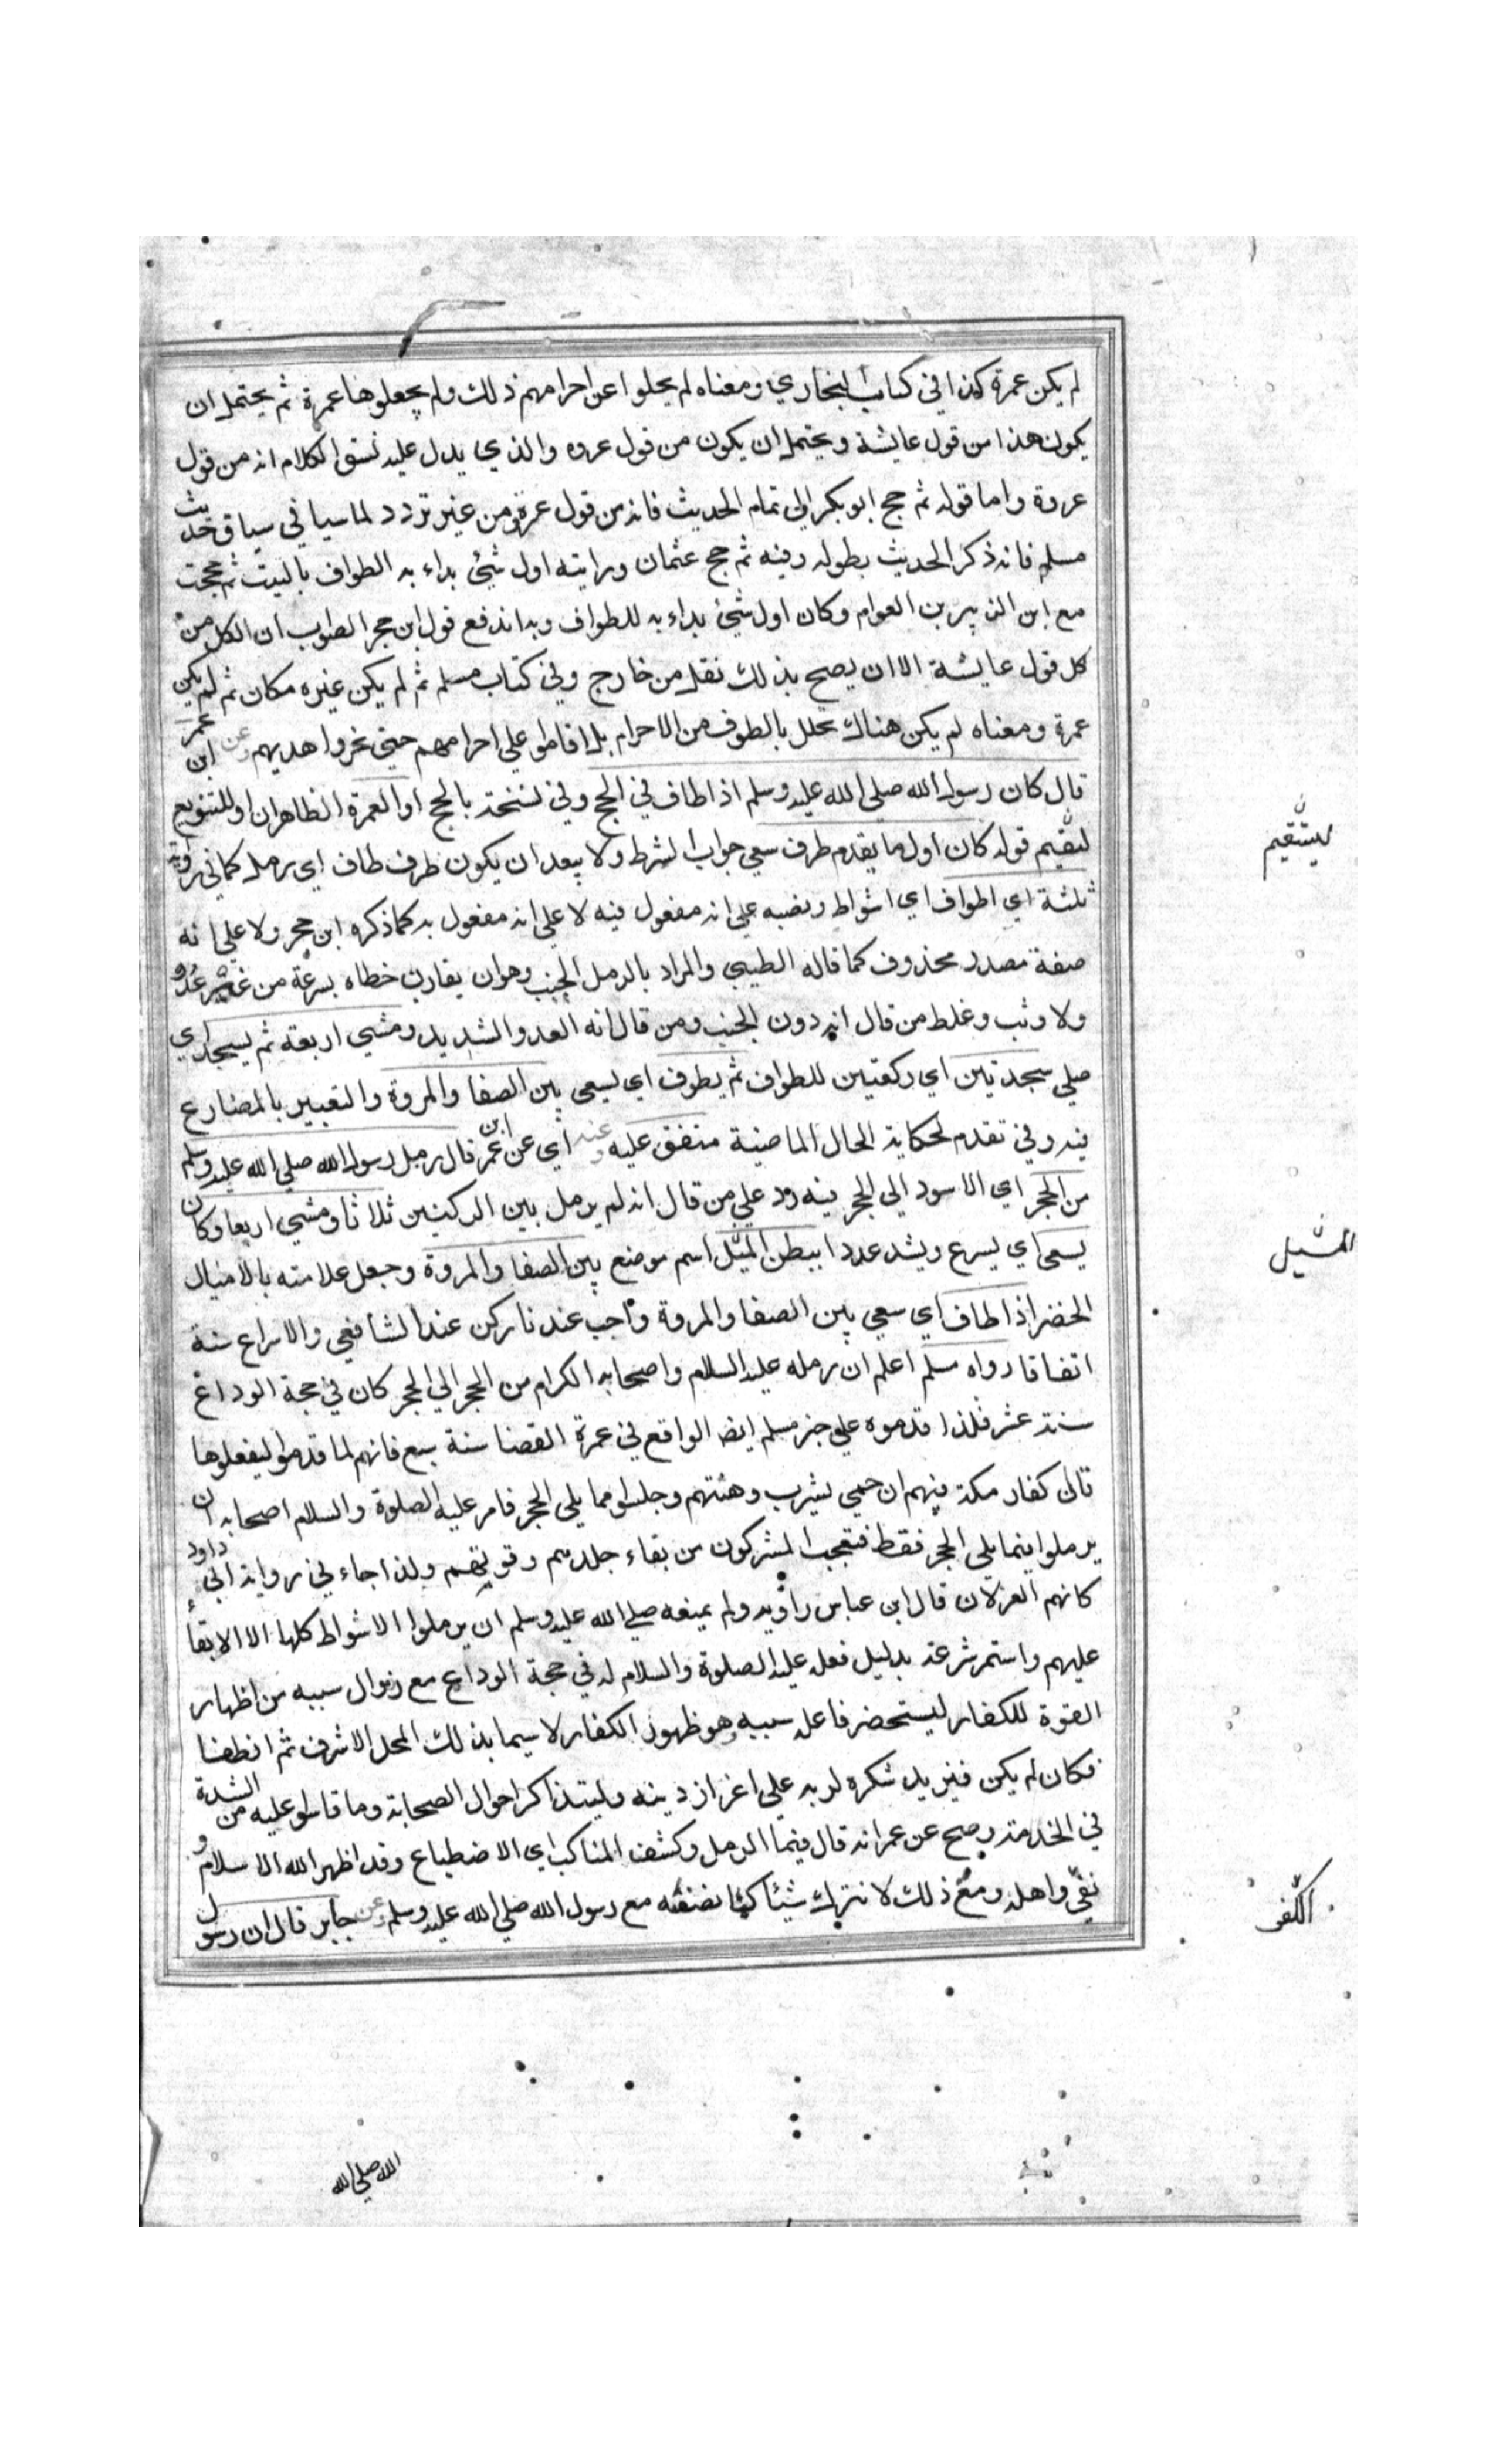 لم يكن عمرة كذا في كتاب البخاري ومعناه لم يحلوا عن احرامهم ذلك ولم يجعلوها عمرة ثم يحتمل ان
يكون هذا من قول عايشة ويحتمل ان يكون من قول عروه والذي يدل عليه نسق الكلام انه من قول
عروة واما قوله ثم حج ابو بكر الى تمام الحديث فانه من قول عروة من غير تردد لما سياتي في سياق حديث
مسلم فانه ذكر الحديث بطوله وفيه ثم حج عثمان ورايته اول شيئ بداء به الطواف بالبيت ثم حججت
مع ابن الزبير بن العوام وكان اول شيئ بداء به للطواف وبه اندفع قول ابن حجر الصواب ان الكل من
كل قول عايشة الا ان يصح بذلك نقل من خارج وفي كتاب مسلم ثم لم يكن غيره مكان ثم لم يكن
عمرة ومعناه لم يكن هناك تحلل بالطوف من الاحرام بل اقاموا علي احرامهم حتي نحروا هديهم وعن ابن عمر
قال كان رسول الله صلي الله عليه وسلم اذا طاف في الحج وفي نسخة بالحج او العمرة الظاهر ان او للتنويع
ليقيم قوله كان اول ما يقدم ظرف سعي جواب الشرط ولا يبعد ان يكون ظرف طاف اي رمل كما في رواية
ثلثة اي اطواف اي اشواط ونصبه علي انه مفعول فيه لا علي انه مفعول به كما ذكره ابن حجر ولا علي انه
صفة مصدر محذوف كما قاله الطيبي والمراد بالرمل الخبب وهو ان يقارب خطاه بسرعة من غير عدو
ولا وثب وغلط من قال انه دون الخبب ومن قال انه العدو الشديد ومشي اربعة ثم يسجد اي
صلي سجدتين اي ركعتين للطواف ثم يطوف اي يسعي بين الصفا والمروة والتعبير بالمضارع
فيه وفي تقدم لحكاية الحال الماضية متفق عليه وعنه اي عن ابن عمر قال رمل رسول الله صلي الله عليه وسلم
من الحجر اي الاسود الي الحجر فيه رد علي من قال انه لم يرمل بين الركنين ثلاثا ومشي اربعا وكان
يسعي اي يسرع ويشد عدوا ببطن المسيل اسم موضع بين الصفا والمروة وجعل علامته بالاميال
الخضر اذا طاف اي سعي بين الصفا والمروة واجب عندنا ركن عند الشافعي والاسراع سنة
اتفاقا رواه مسلم اعلم ان رمله عليه السلام واصحابه الكرام من الحجر الي الحجر كان في حجة الوداع
سنة عشر فلذا قدموه علي خبر مسلم ايضا الواقع في عمرة القضا سنة سبع فانهم لما قدموا ليفعلوها
قال كفار مكة فيهم ان حمي يثرب وهنتهم وجلسوا مما يلي الحجر فامر عليه الصلوة والسلام اصحابه ان
يرملوا فيما يلي الحجر فقط فتعجب المشركون من بقاء جلدهم وقوتهم ولذا جاء في رواية ابي داود
كانهم الغزلان قال ابن عباس راويه ولم يمنعه صلي الله عليه وسلم ان يرملوا الاشواط كلها الا الابقاء
عليهم واستمر شرعه بدليل فعله عليه الصلوة والسلام له في حجة الوداع مع زوال سببه من اظهار
القوة للكفار ليستحضر فاعله سببه وهو ظهور الكفار لا سيما بذلك المحل الاشرف ثم انطفا
فكان لم يكن فيزيد شكره لربه علي اعزاز دينه وليتذاكر احوال الصحابة وما قاسوا عليه من الشدة
في الخدمة وصح عن عمر انه قال فيما الرمل وكشف المناكب اي الاضطباع وقد اظهر الله الاسلام و
نفي واهله ومع ذلك لا نترك شيئا كنا نصنعه مع رسول الله صلي الله عليه وسلم وعن جابر قال ان رسول
ليستقيم
المسيل
الكفر
الله صلي الله